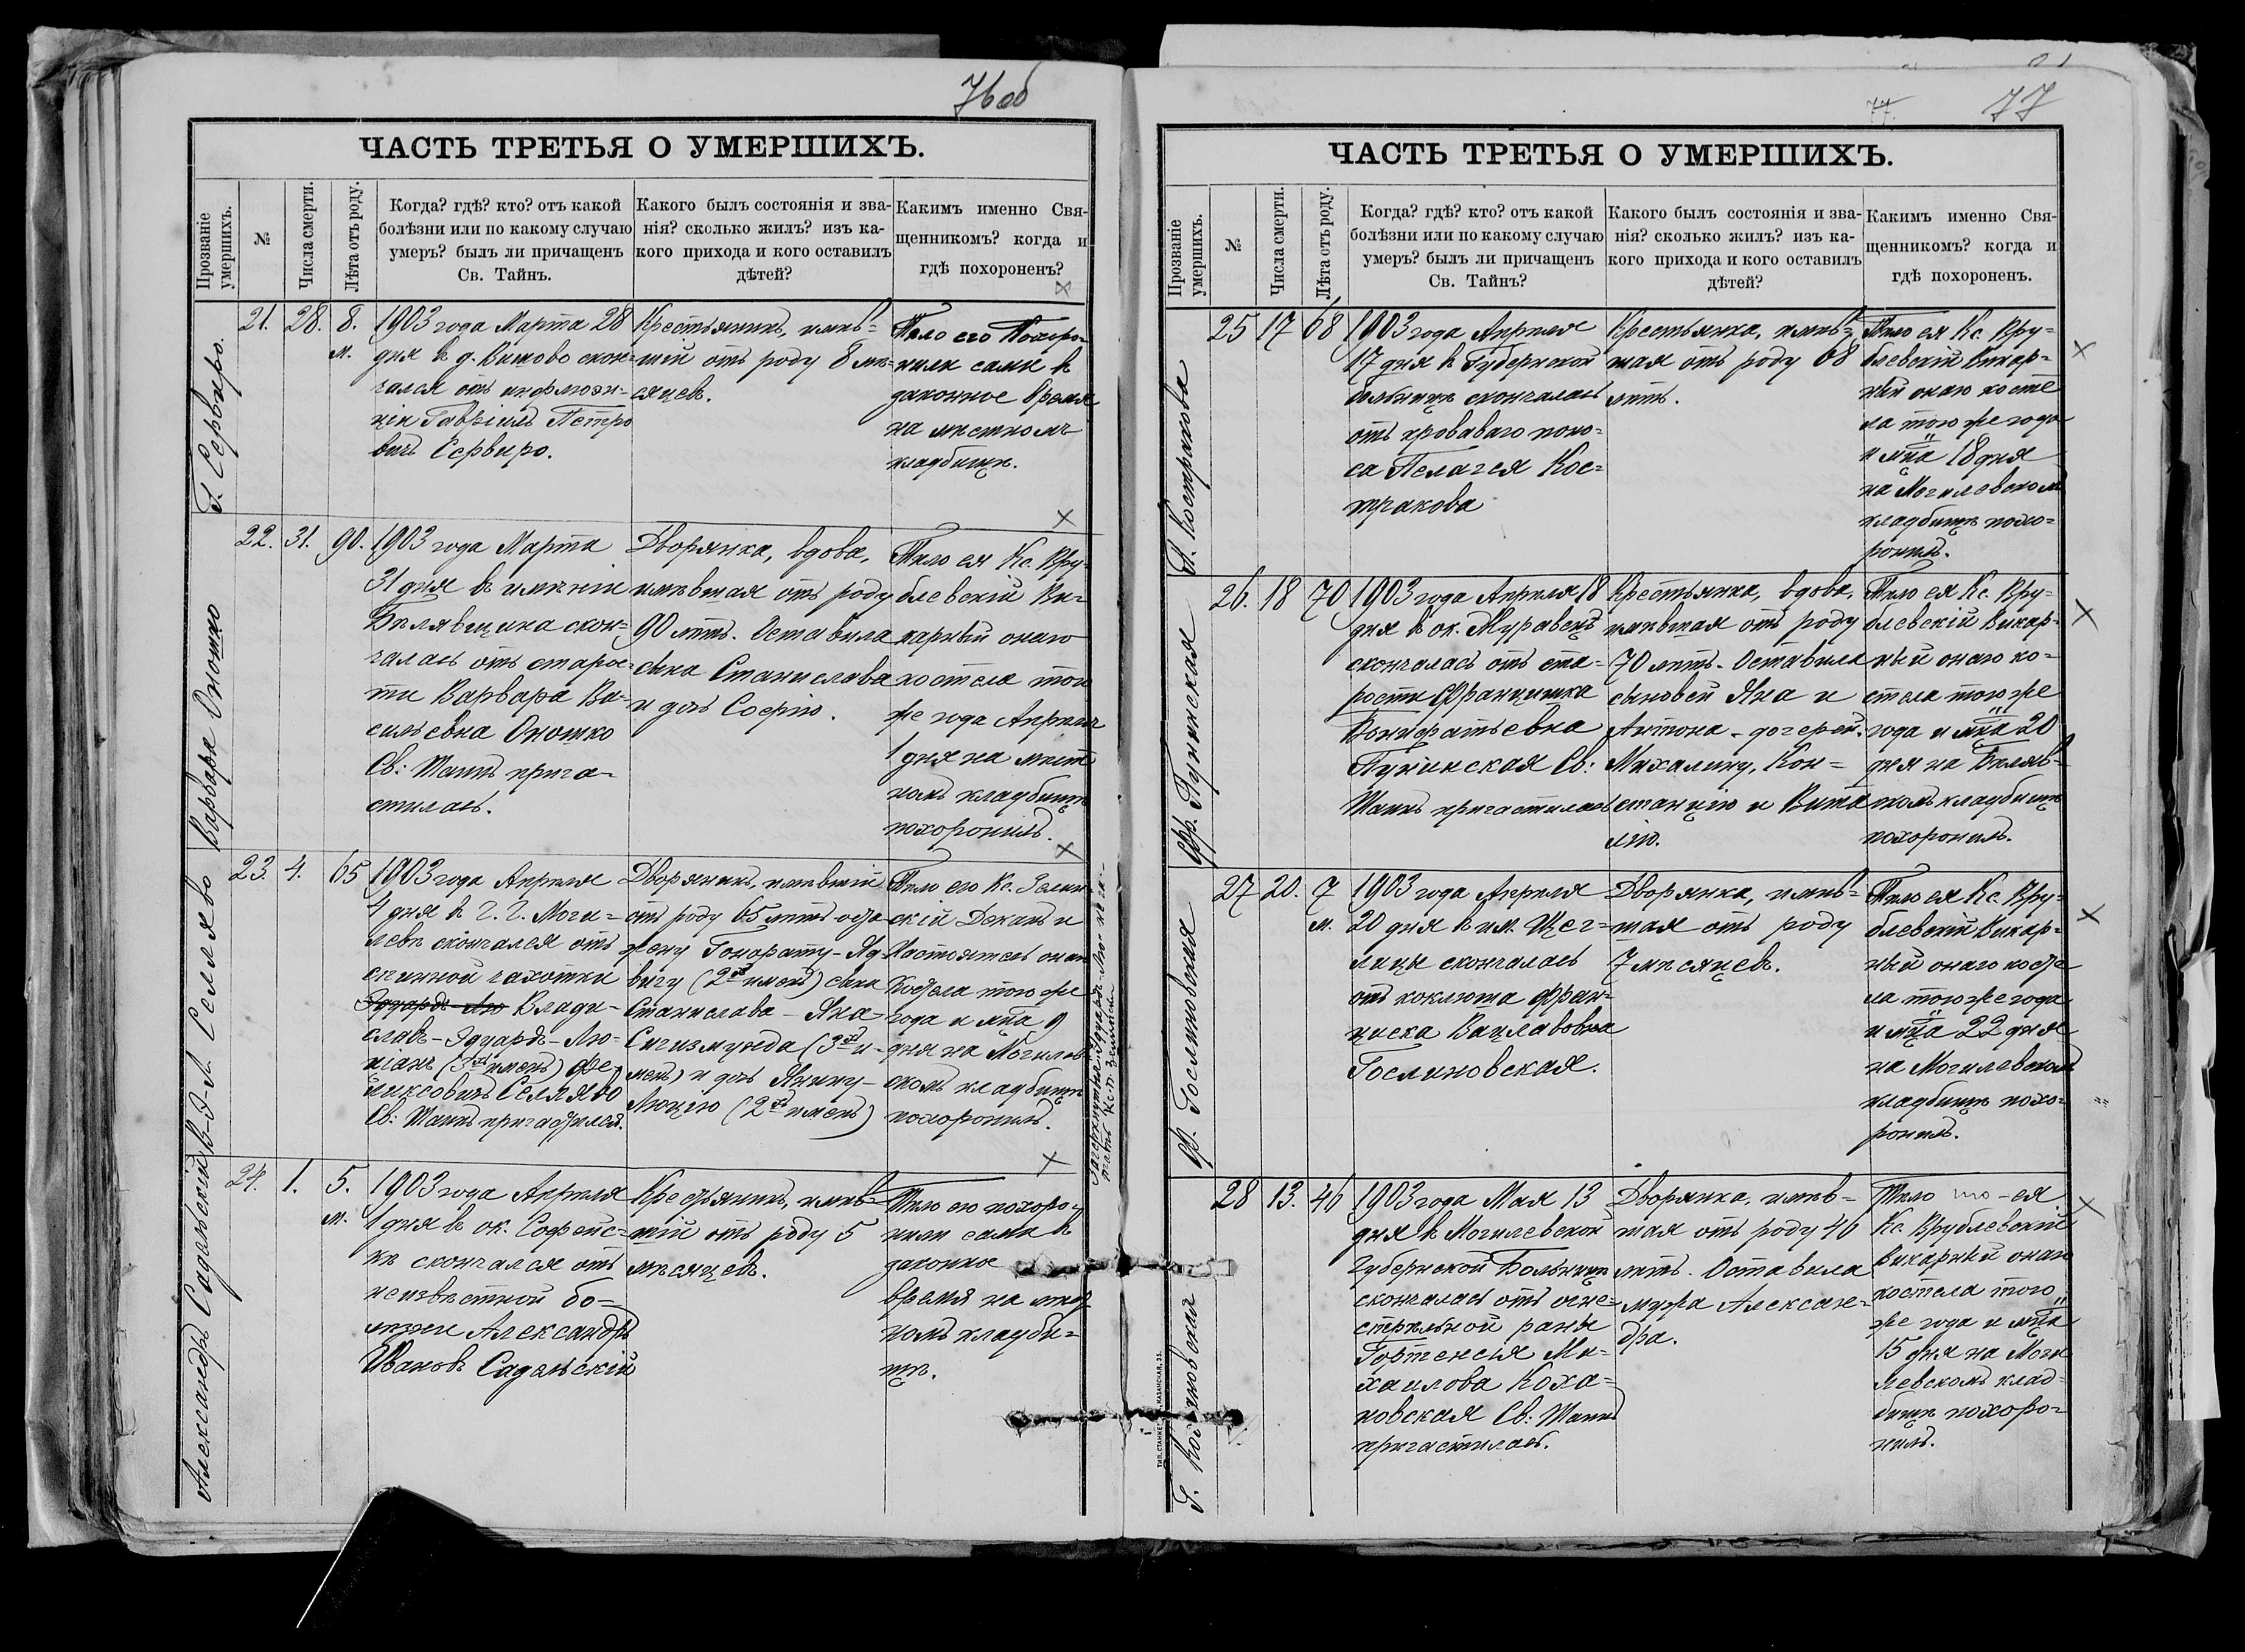 76 об
ЧАСТЬ ТРЕТЬЯ О УМЕРШИХЪ.
Прозваніе умершихъ.
№
Числа смерти.
Лѣта отъ роду.
Когда? гдѣ? кто? отъ какой
болѣзни или по какому случаю
умеръ? былъ ли причащенъ
Св. Тайнъ.
Какого былъ состоянія и зва-
нія? сколько жилъ? изъ ка-
кого прихода и кого оставилъ
дѣтей?
Какимъ именно Свя-
щенникомъ? когда и
гдѣ похороненъ?
Г. Сервиро.
21.
28.
8.
м.
1903 года Марта 28
дня въ д. скон-
чался отъ инфлюэн-
ціи Гавріилъ Петро
вичъ Сервиро.
Крестьянинъ, имѣв=
шій отъ роду 8 мѣ-
сяцевъ.
Тѣло его Похоро-
нили сами въ
законное Время
на мѣстномъ
кладбищѣ.
Варвара Оношко
22.
31.
90.
1903 года Марта
31 дня въ имѣніи
Бѣлявщина скон-
чалась отъ старос-
ти Варвара Ва-
сильевна Оношко
Св: Таинъ прича-
стилась.
Дворянка, вдова,
имѣвшая отъ роду
90 лѣтъ. Оставила
сына Станислава
и дочь Софію.
Тѣло ея Кс. Вру-
блевскій Ви-
карный онаго
костела того
же года Апрѣля
1 дня на мѣст
номъ кладбищѣ
похоронилъ.
В-Э-Л Селляво
23.
4.
65
1903 года Апрѣля
4 дня въ Г. Г. Моги=
левѣ скончался отъ
спинной чахотки
Эдуардъ-Лю Влади-
славъ-Эдуардъ-Лю-
ціанъ (3хъ именъ) Фе-
ликсовичъ Селляво
Св: Таинъ причастился.
Дворянинъ, имѣвшій
отъ роду 65 лѣтъ оста
жену Гонорату-Яд
вигу (2хъ именъ) сына
Станислава-Яна-
Сигизмунда (3хъ и-
менъ) и дочь Янину-
Люцію (2хъ именъ)
Тѣло его Кс. Зелин-
скій Деканъ и
Настоятель онаго
костела того же
года и мца 9
дня на Могилев
скомъ кладбищѣ
похоронилъ.
Зачеркнутыя: Эдуардъ-Лю- не чи-
тать Кс. П. Зелинскій
Александръ Садальскій
24.
1.
5.
м.
1903 года Апрѣля
1 дня въ ок. Софейс=
кѣ скончался отъ
неизвѣстной бо=
лѣзни Александръ
Ивановъ Садальскій
Крестьянинъ, имѣв=
шій отъ роду 5
мѣсяцевъ.
Тѣло его похоро-
нили сами въ
законное
время на мѣст
номъ кладби=
щѣ.
77.
77
ЧАСТЬ ТРЕТЬЯ О УМЕРШИХЪ.
Прозваніе умершихъ.
№
Числа смерти.
Лѣта отъ роду.
Когда? гдѣ? кто? отъ какой
болѣзни или по какому случаю
умеръ? былъ ли причащенъ
Св. Тайнъ?
Какого былъ состоянія и зва-
нія? сколько жилъ? изъ ка-
кого прихода и кого оставилъ
дѣтей?
Какимъ именно Свя-
щенникомъ? когда и
гдѣ похороненъ.
П. Кострикова
25
17
68
1903 года Апрѣля
17 дня въ Губернской
больницѣ скончалась
отъ кроваваго поно=
са Пелагея Кос=
трикова
Крестьянка, имѣв=
шая отъ роду 68
лѣтъ.
Тѣло ея Кс. Вру=
блевскій Викар=
ный онаго косте
ла того же года
и мца 18 дня
на Могилевскомъ
кладбищѣ похо=
ронилъ.
Фр. Пунинская
26.
18
70
1903 года Апрѣля 18
дня въ ок. Муравецъ
скончалась отъ ста=
рости Францишка
Бонифатьевна
Пунинская Св:
Таинъ причастилась
Крестьянка, вдова,
имѣвшая отъ роду
70 лѣтъ. Оставила
сыновей Яна и
Антона - дочерей:
Михалину, Кон=
станцію и Вита
лію.
Тѣло ея Кс. Вру=
блевскій Викар=
ный онаго ко=
стела того же
года и мца 20
дня на Бѣляв=
скомъ кладбищѣ
похоронилъ.
Ф. Гослиновская
27
20.
7
м.
1903 года Апрѣля
20 дня въ им. Щег=
лицы скончалась
отъ коклюша Фран=
циска Вацлавовна
Гослиновская.
Дворянка, имѣв=
шая отъ роду
7 мѣсяцевъ.
Тѣло ея Кс. Вру=
блевскій Викар=
ный онаго косте
ла того же года
и мца 22 дня
на Могилевскомъ
кладбищѣ похо=
ронилъ.
Г. Кохановская
28
13.
46
1903 года Мая 13
дня въ Могилевской
Губернской Больницѣ
скончалась отъ огне=
стрѣльной раны
Гортенсія Ми=
хаилова Коха=
новская Св: Таинъ
причастилась.
Дворянка, имѣв=
шая отъ роду 46
лѣтъ. Оставила
мужа Алексан=
дра.
Тѣло ея
Кс. Врублевскій
Викарный онаго
костела того
же года и мца
15 дня на Моги
левскомъ клад=
бищѣ похоро=
нилъ.